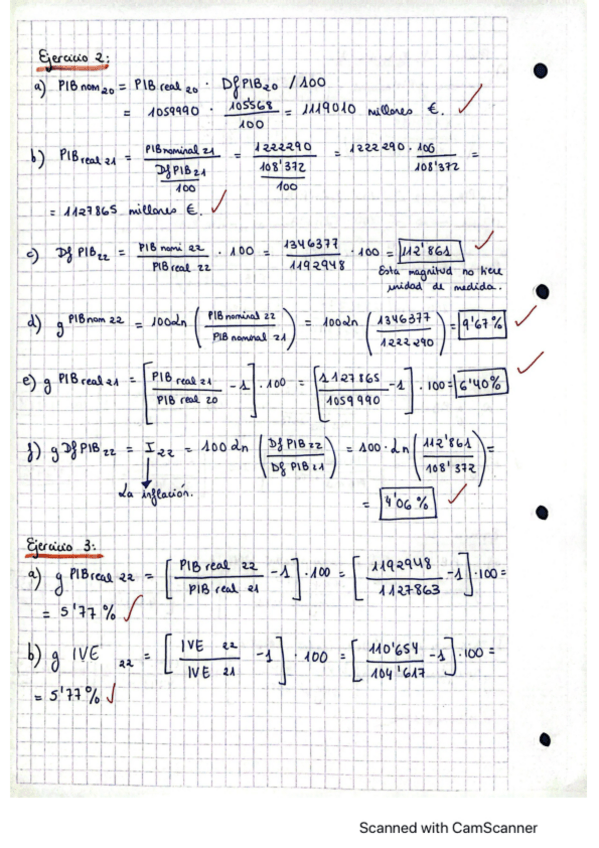 Ejercicio 2:
a) PIB nom20 = PIB real 20 · Df PIB20 / 100
= 1059990 · 105'568 / 100 = 1119010 millones €.
b) PIB real 21 = PIB nominal 21 / (Df PIB21 / 100) = 1222290 / (108'372 / 100) = 1222290 · 100 / 108'372 =
= 1127865 millones €.
c) Df PIB22 = PIB nomi 22 / PIB real 22 · 100 = 1346377 / 1192948 · 100 = 112'861
Esta magnitud no tiene
unidad de medida.
d) g PIB nom 22 = 100 Ln (PIB nominal 22 / PIB nominal 21) = 100 Ln (1346377 / 1222290) = 9'67 %
e) g PIB real 21 = [PIB real 21 / PIB real 20 - 1] · 100 = [1127865 / 1059990 - 1] · 100 = 6'40 %
f) g Df PIB22 = I22 = 100 Ln (Df PIB 22 / Df PIB 21) = 100 · Ln (112'861 / 108'372) =
La inflación.
= 4'06 %
Ejercicio 3:
a) g PIB real 22 = [PIB real 22 / PIB real 21 - 1] · 100 = [1192948 / 1127863 - 1] · 100 =
= 5'77 %
b) g IVE 22 = [IVE 22 / IVE 21 - 1] · 100 = [110'654 / 104'617 - 1] · 100 =
= 5'77 %
Scanned with CamScanner